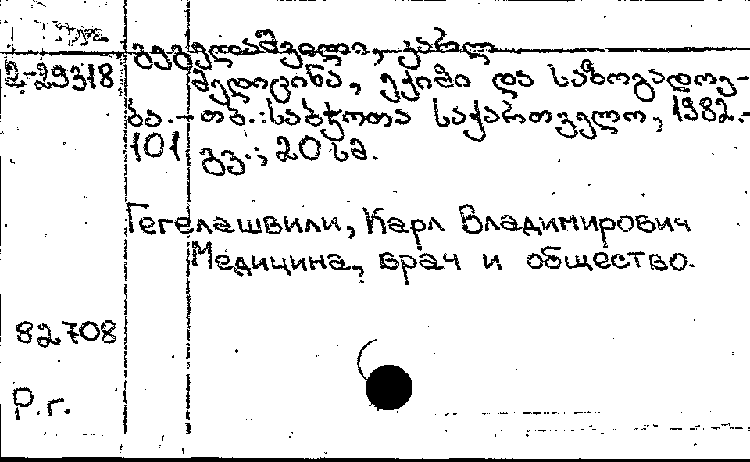 გეგელაშვილი, კარლ
2-29318 მედიცინა, ექიმი და საზოგადოე-
ბა. – თბ.: საბჭოთა საქართველო, 1982.-
101 გვ.; 20 სმ.
Гегелашвили, Карл Владимирович
Медицина, врач и общество.
82708
Р.г.